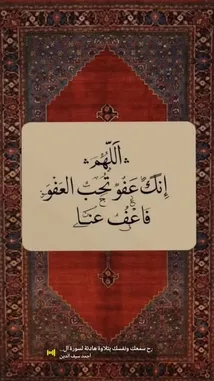 اَللّٰهُمَّ
إِنَّكَ عَفُوٌّ تُحِبُّ العَفْوَ
فَاعْفُ عَنَّا
رح سمعك ونفسك بتلاوة هادئة لسورة آل...
أحمد سيف الدين